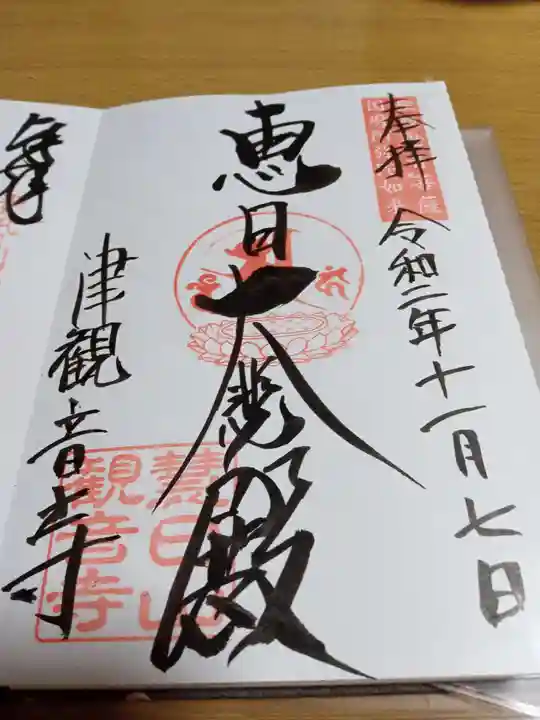 奉拝
令和二年十一月七日
恵日大悲殿
津観音寺
慧日山
観音寺